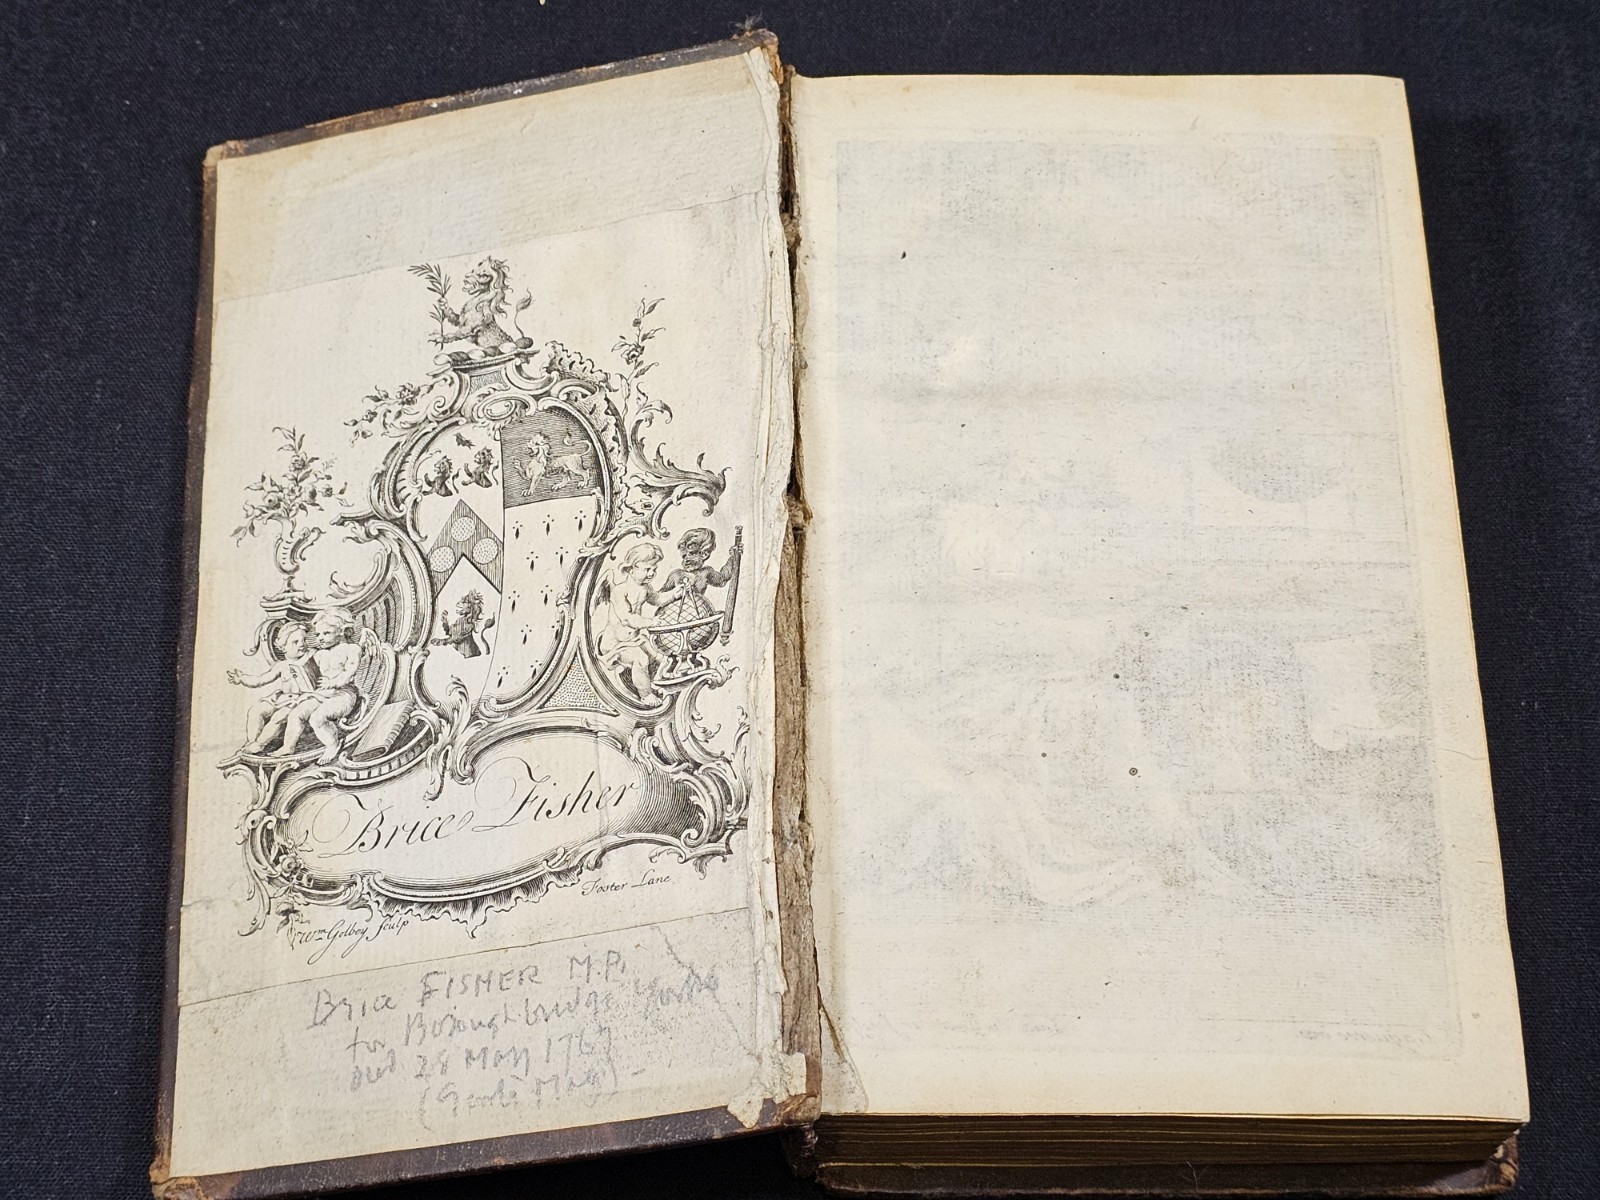 Brice Fisher
Foster Lane
Wm. Golbey Sculp
Brice FISHER M.P.
for Boroughbridge Yorks
died 28 May 1767
(Gent's Mag)